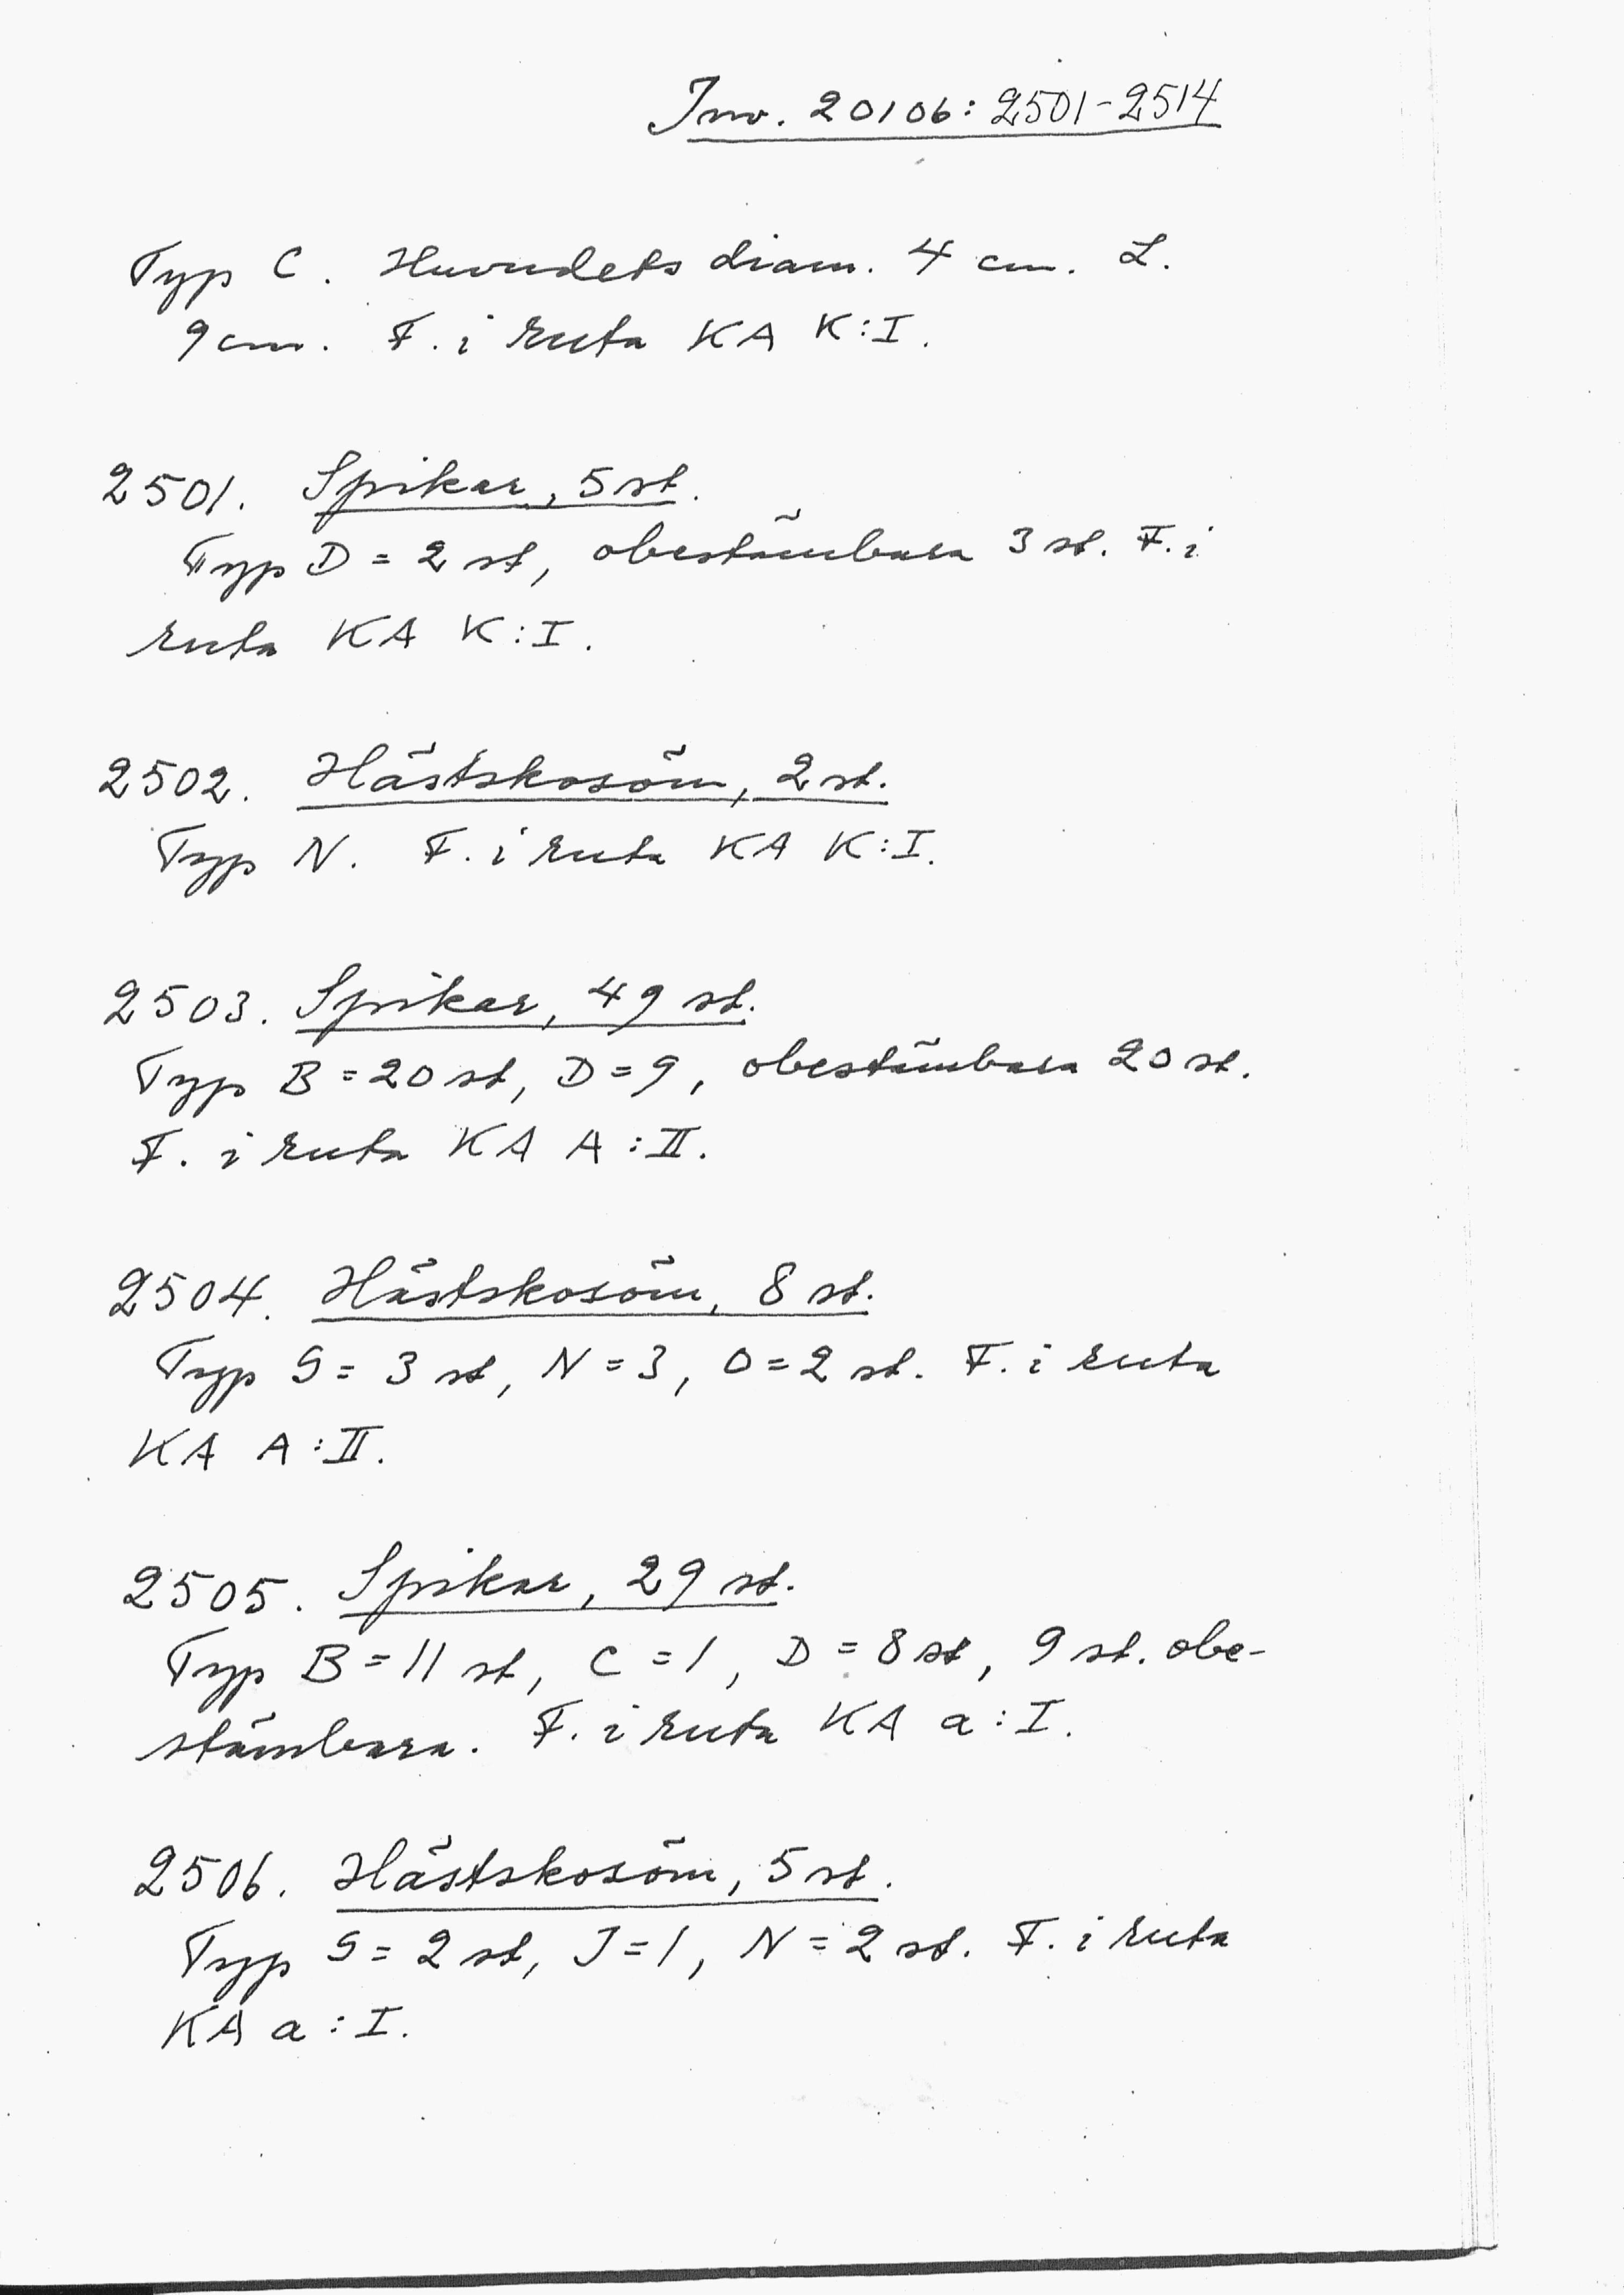 Inv. 20106: 2501-2514
Typ C. Huvudets diam. 4 cm. L.
9 cm. F. i ruta KA K:I.
2501. Spikar, 5 st.
Typ D = 2 st, obestämbara 3 st. F. i
ruta KA K:I.
2502. Hästskosöm, 2 st.
Typ N. F. i ruta KA K:I.
2503. Spikar, 49 st.
Typ B = 20 st, D = 9, obestämbara 20 st.
F. i ruta KA A:II.
2504. Hästskosöm, 8 st.
Typ S = 3 st, N = 3, O = 2 st. F. i ruta
KA A:II.
2505. Spikar, 29 st.
Typ B = 11 st, C = 1, D = 8 st, 9 st. obe-
stämbara. F. i ruta KA a:I.
2506. Hästskosöm, 5 st.
Typ S = 2 st, J = 1, N = 2 st. F. i ruta
KA a:I.